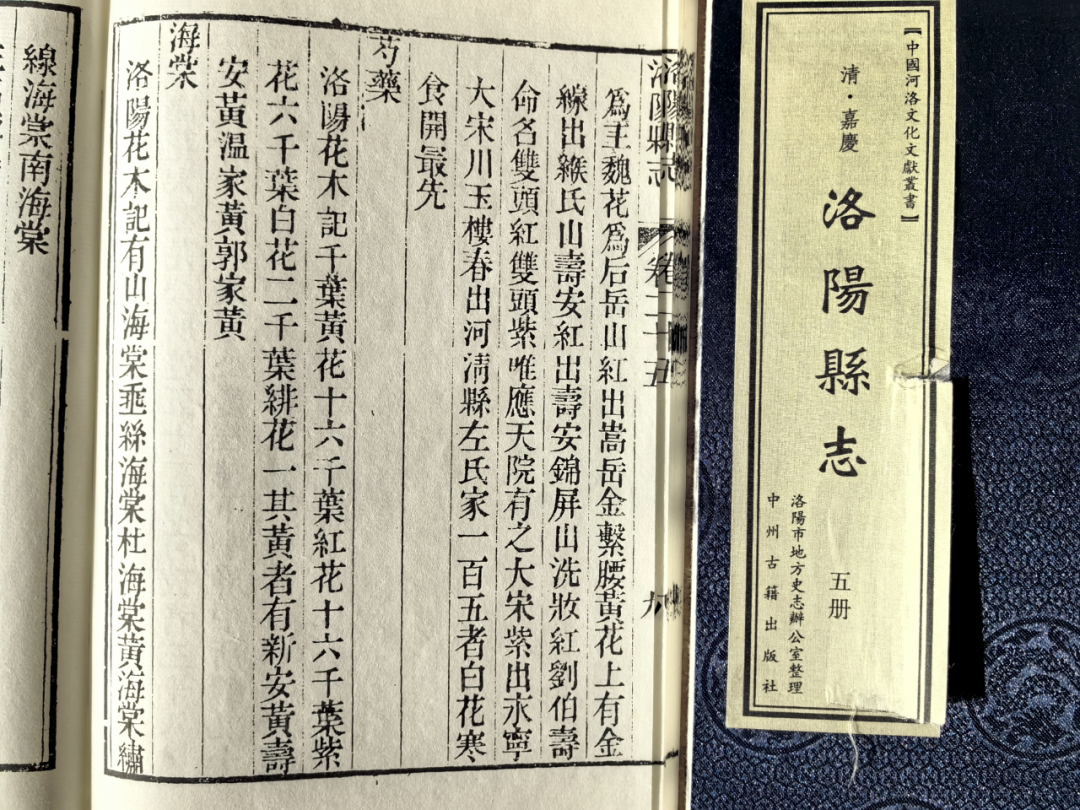 【中國河洛文化文獻叢書】
清·嘉慶
洛陽縣志
五册
洛陽市地方史志辦公室整理
中州古籍出版社
洛陽縣志 卷二十五
爲王魏花爲后岳山紅出嵩岳金繫腰黃花上有金
線出緱氏山壽安紅出壽安錦屏山洗妝紅劉伯壽
命名雙頭紅雙頭紫唯應天院有之大宋紫出永寧
大宋川玉樓春出河淸縣左氏家一百五者白花寒
食開最先
芍藥
洛陽花木記千葉黃花十六千葉紅花十六千葉紫
花六千葉白花二千葉緋花一其黃者有新安黃壽
安黃温家黃郭家黃
海棠
洛陽花木記有山海棠垂絲海棠杜海棠黃海棠繡
線海棠南海棠